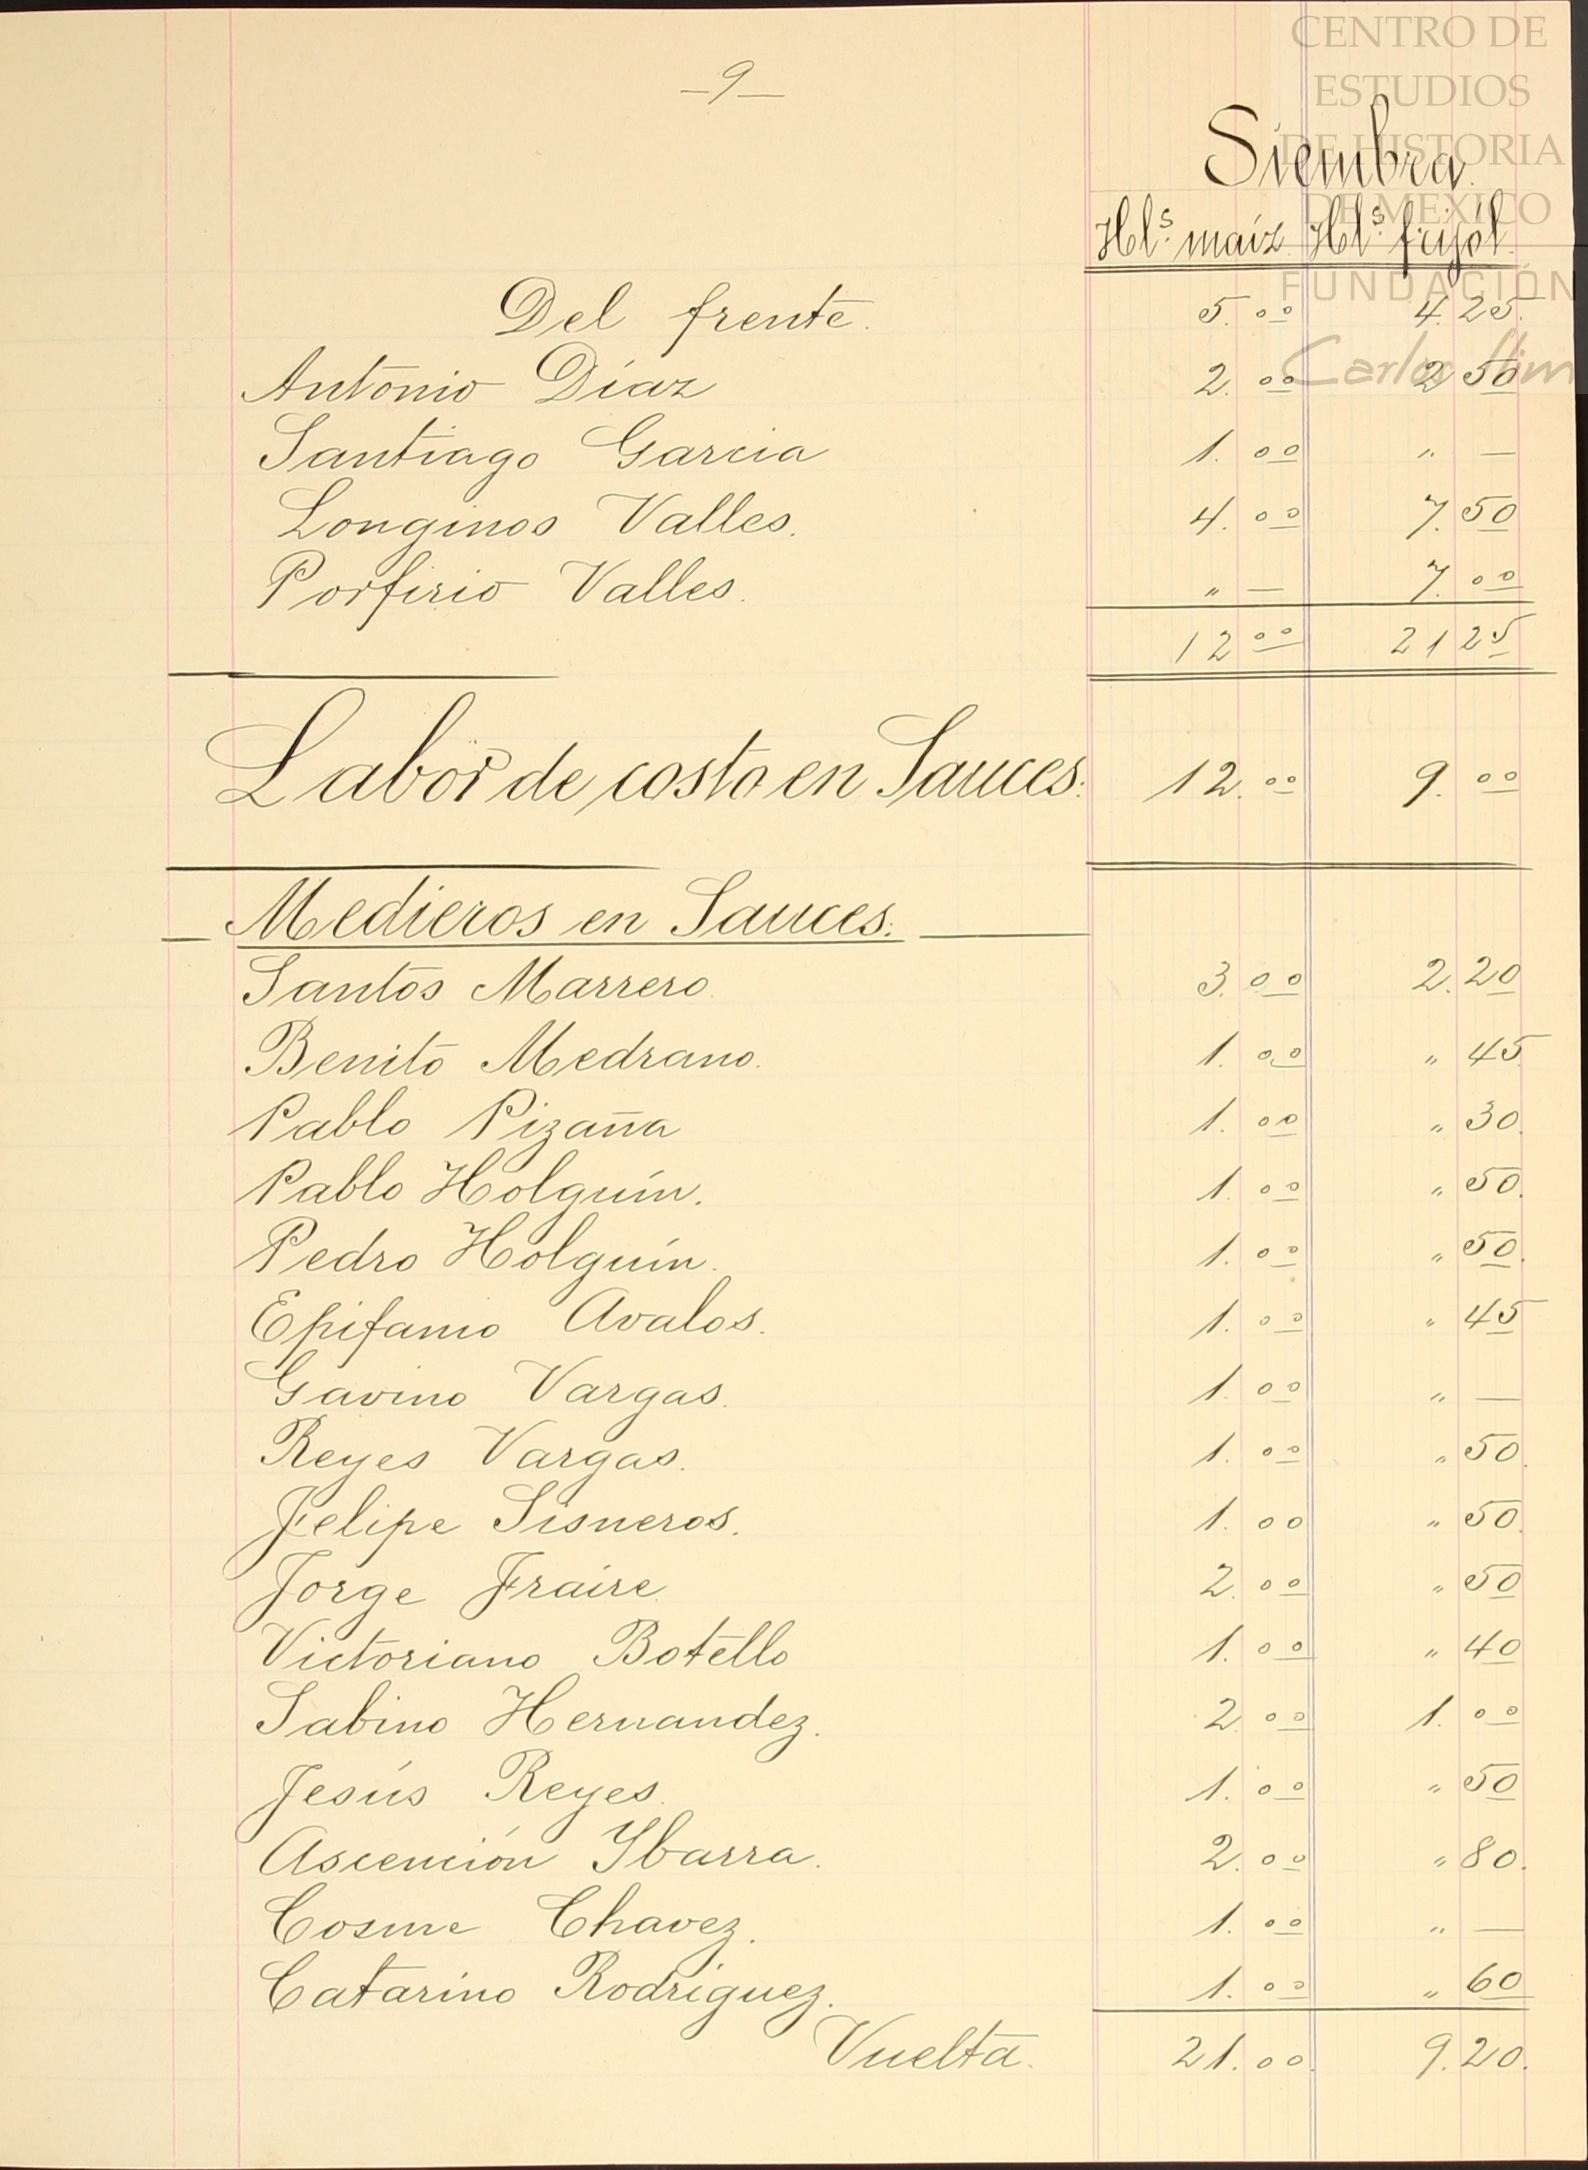 CENTRO DE
ESTUDIOS
DE HISTORIA
DE MEXICO
FUNDACIÓN
Carlos Slim
—9—
Siembra.
Hls. maíz. Hls. frijol.
Del frente. 5.00 4.25.
Antonio Díaz 2.00 2 50
Santiago Garcia 1.00 " —
Longinos Valles. 4.00 7.50
Porfirio Valles. " — 7.00
12 00 21 25
Labor de costo en Sauces: 12.00 9.00
Medieros en Sauces:
Santos Marrero. 3.00 2.20
Benito Medrano. 1.00 " 45
Pablo Pizaña 1.00 " 30.
Pablo Holguín. 1.00 " 50.
Pedro Holguín. 1.00 " 50.
Epifanio Avalos. 1.00 " 45
Gavino Vargas. 1.00 " —
Reyes Vargas. 1.00 " 50.
Felipe Sisneros. 1.00 " 50.
Jorge Fraire. 2.00 " 50
Victoriano Botello 1.00 " 40
Sabino Hernandez. 2.00 1.00
Jesús Reyes. 1.00 " 50
Ascención Ybarra. 2.00 " 80.
Cosme Chavez. 1.00 " —
Catarino Rodriguez. 1.00 " 60
Vuelta. 21.00. 9.20.